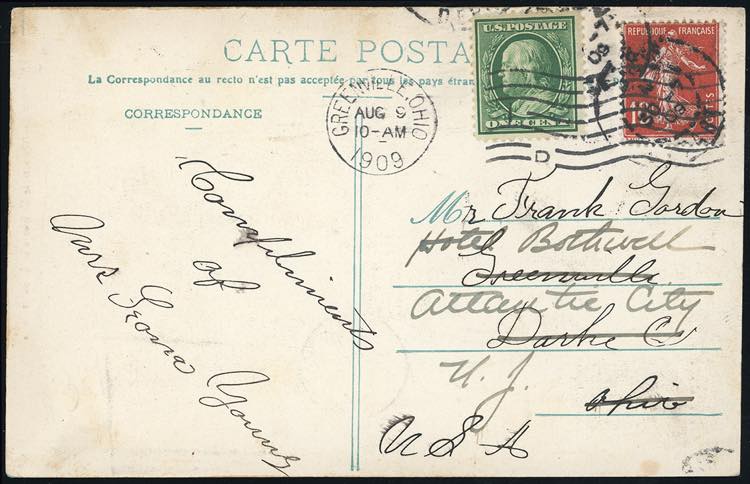 CARTE POSTA
La Correspondance au recto n'est pas acceptée par tous les pays étran
CORRESPONDANCE
GREENVILLE, OHIO
AUG 9
10-AM
1909
U.S. POSTAGE
ONE CENT
REPUBLIQUE FRANÇAISE
10
POSTES
D
Compliments
of
Young
Mr Frank Gordon
Hotel Bothwell
Greenville
Atlantic City
Darke Co
N. J.
Ohio
U S A